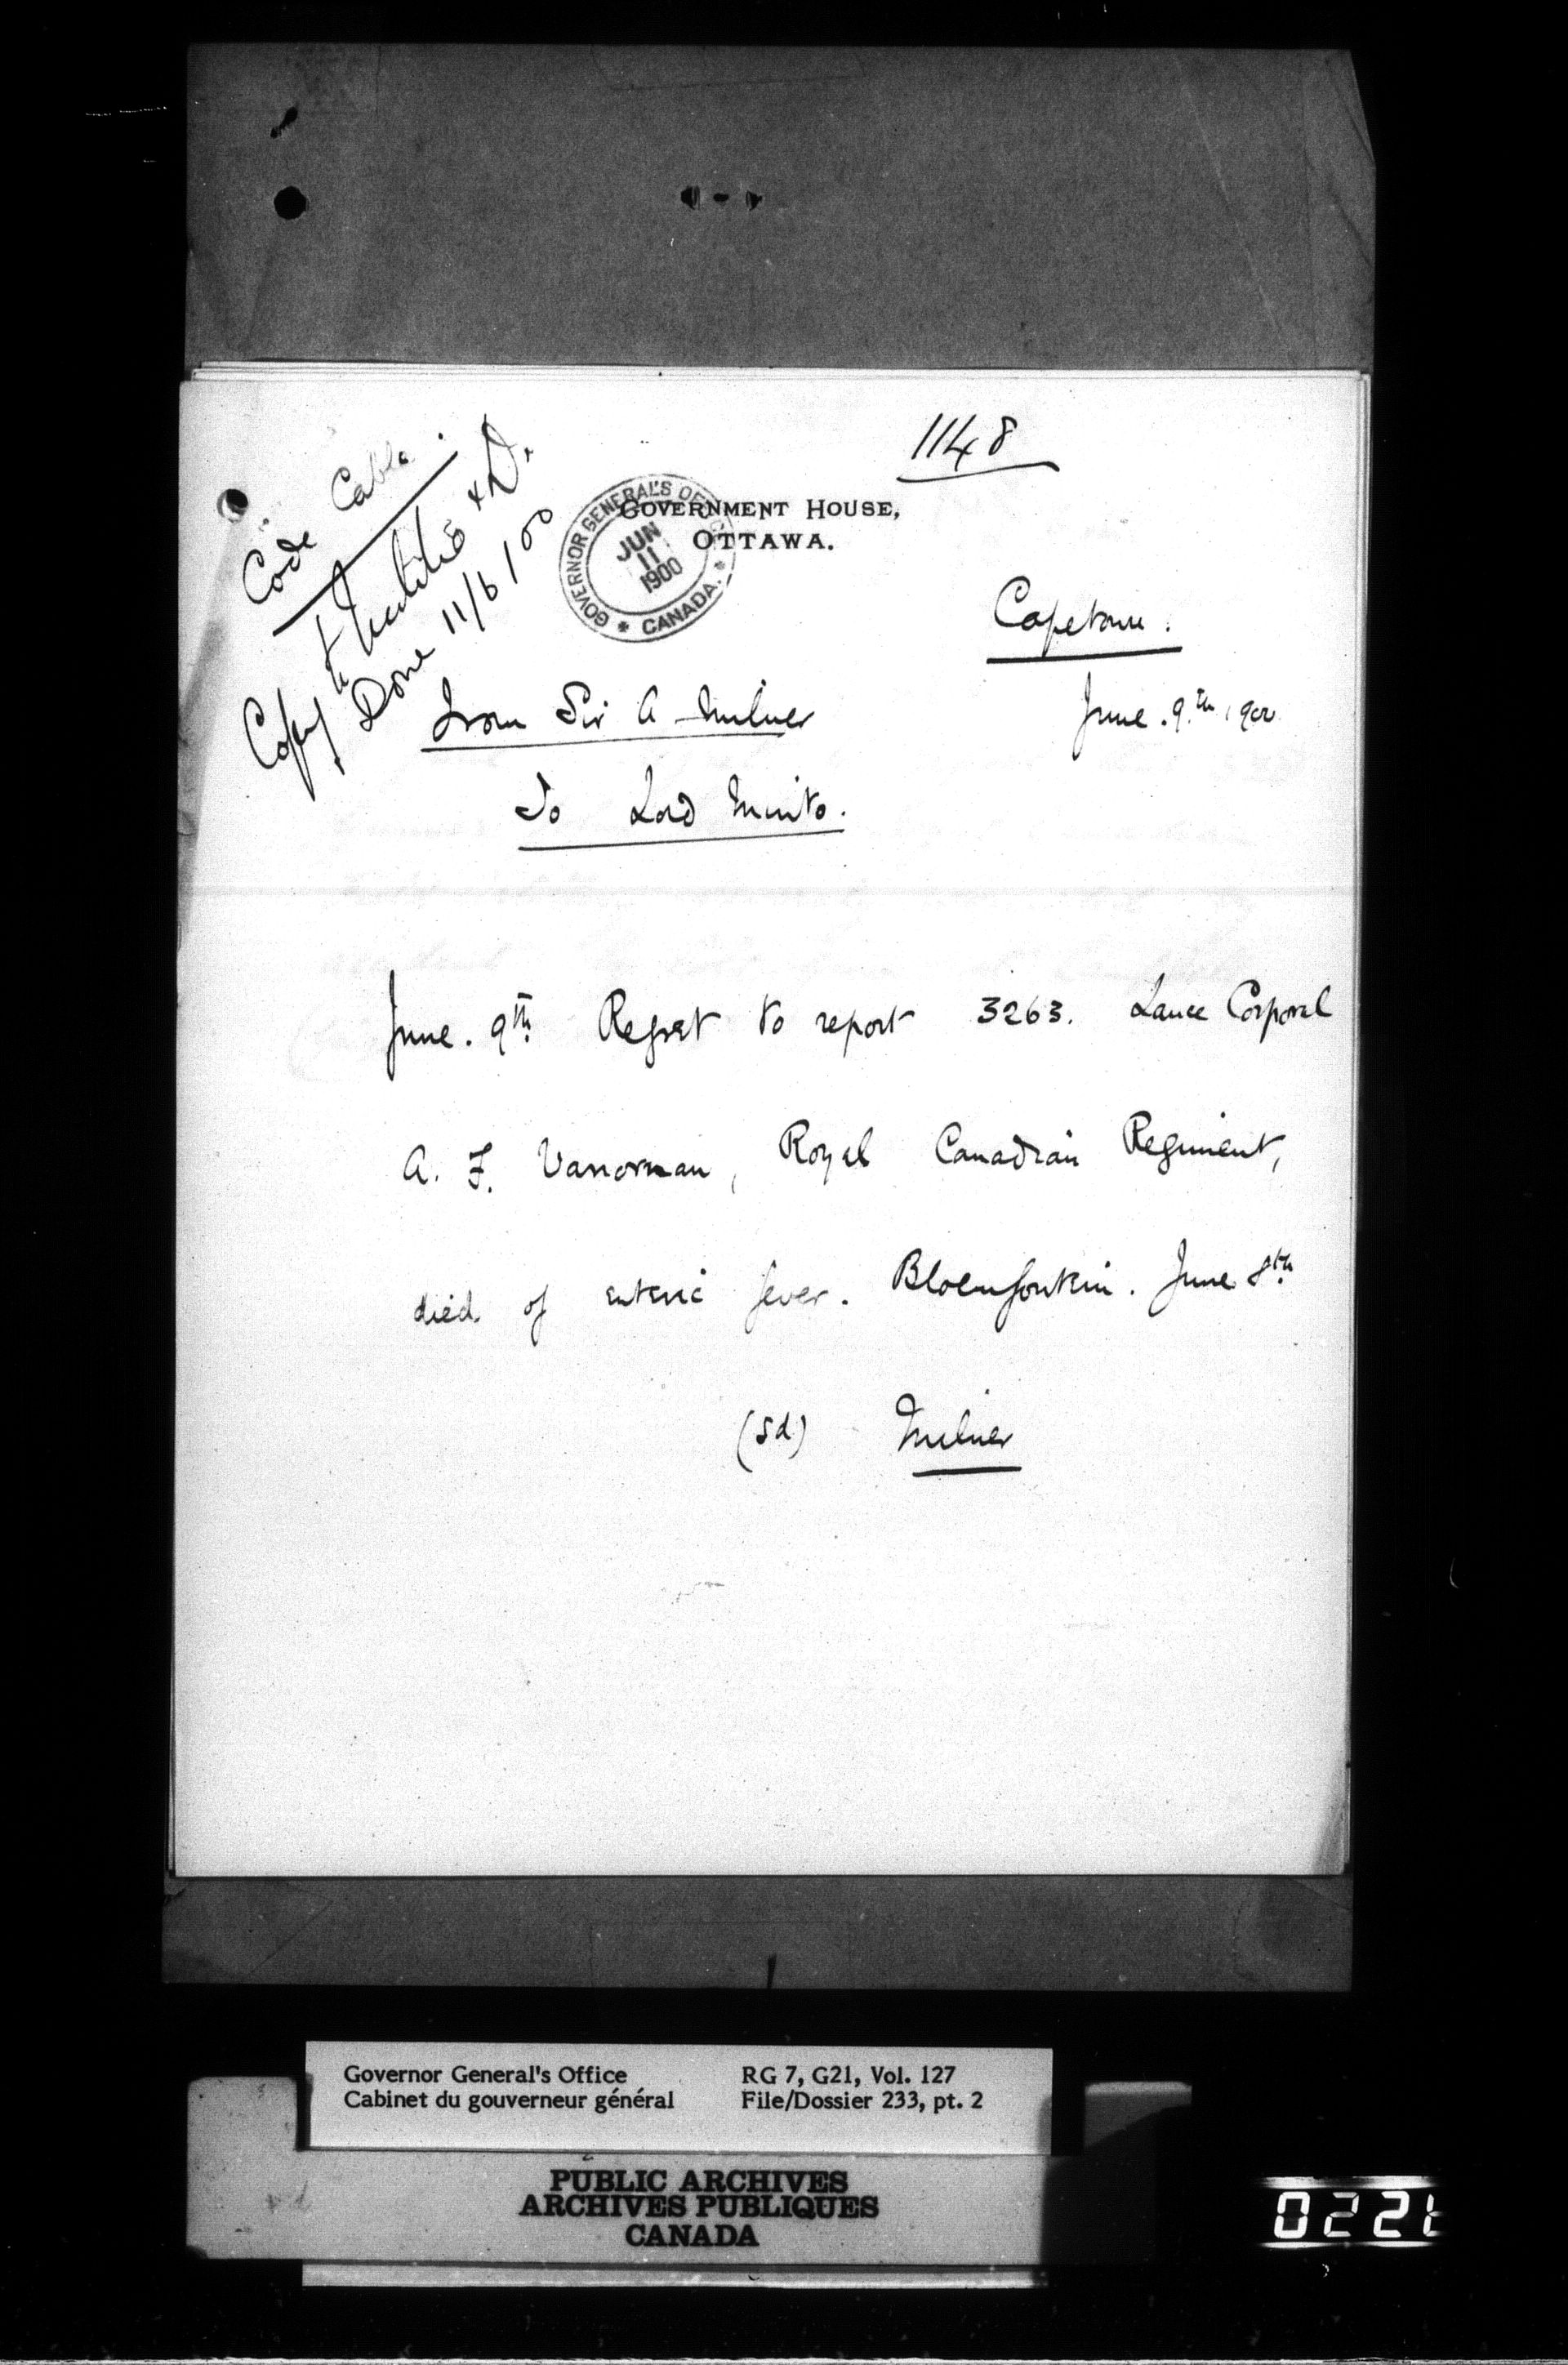 1148
Code Cable.
Copy to Militia & D.
Done 11/6/00
GOVERNOR GENERAL'S OFFICE
JUN
11
1900
* CANADA. *
GOVERNMENT HOUSE,
OTTAWA.
Capetown.
June. 9th. 1900
From Sir A Milner
To Lord Minto.
June. 9th. Regret to report 3263. Lance Corporal
A. F. Vanorman, Royal Canadian Regiment,
died of enteric fever. Bloemfontein. June 8th.
(sd) Milner
Governor General's Office
Cabinet du gouverneur général
RG 7, G21, Vol. 127
File/Dossier 233, pt. 2
PUBLIC ARCHIVES
ARCHIVES PUBLIQUES
CANADA
0221